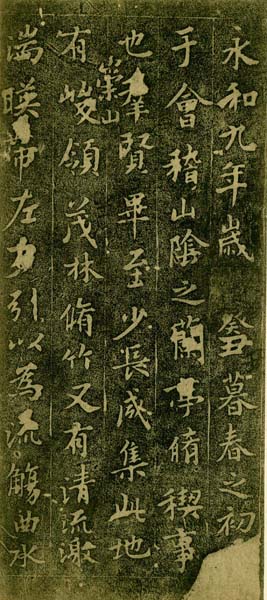 永和九年歲癸丑暮春之初
于會稽山陰之蘭亭脩稧事
也羣賢畢至少長咸集此地
有崇山峻領茂林脩竹又有清流激
湍暎帶左右引以為流觴曲水